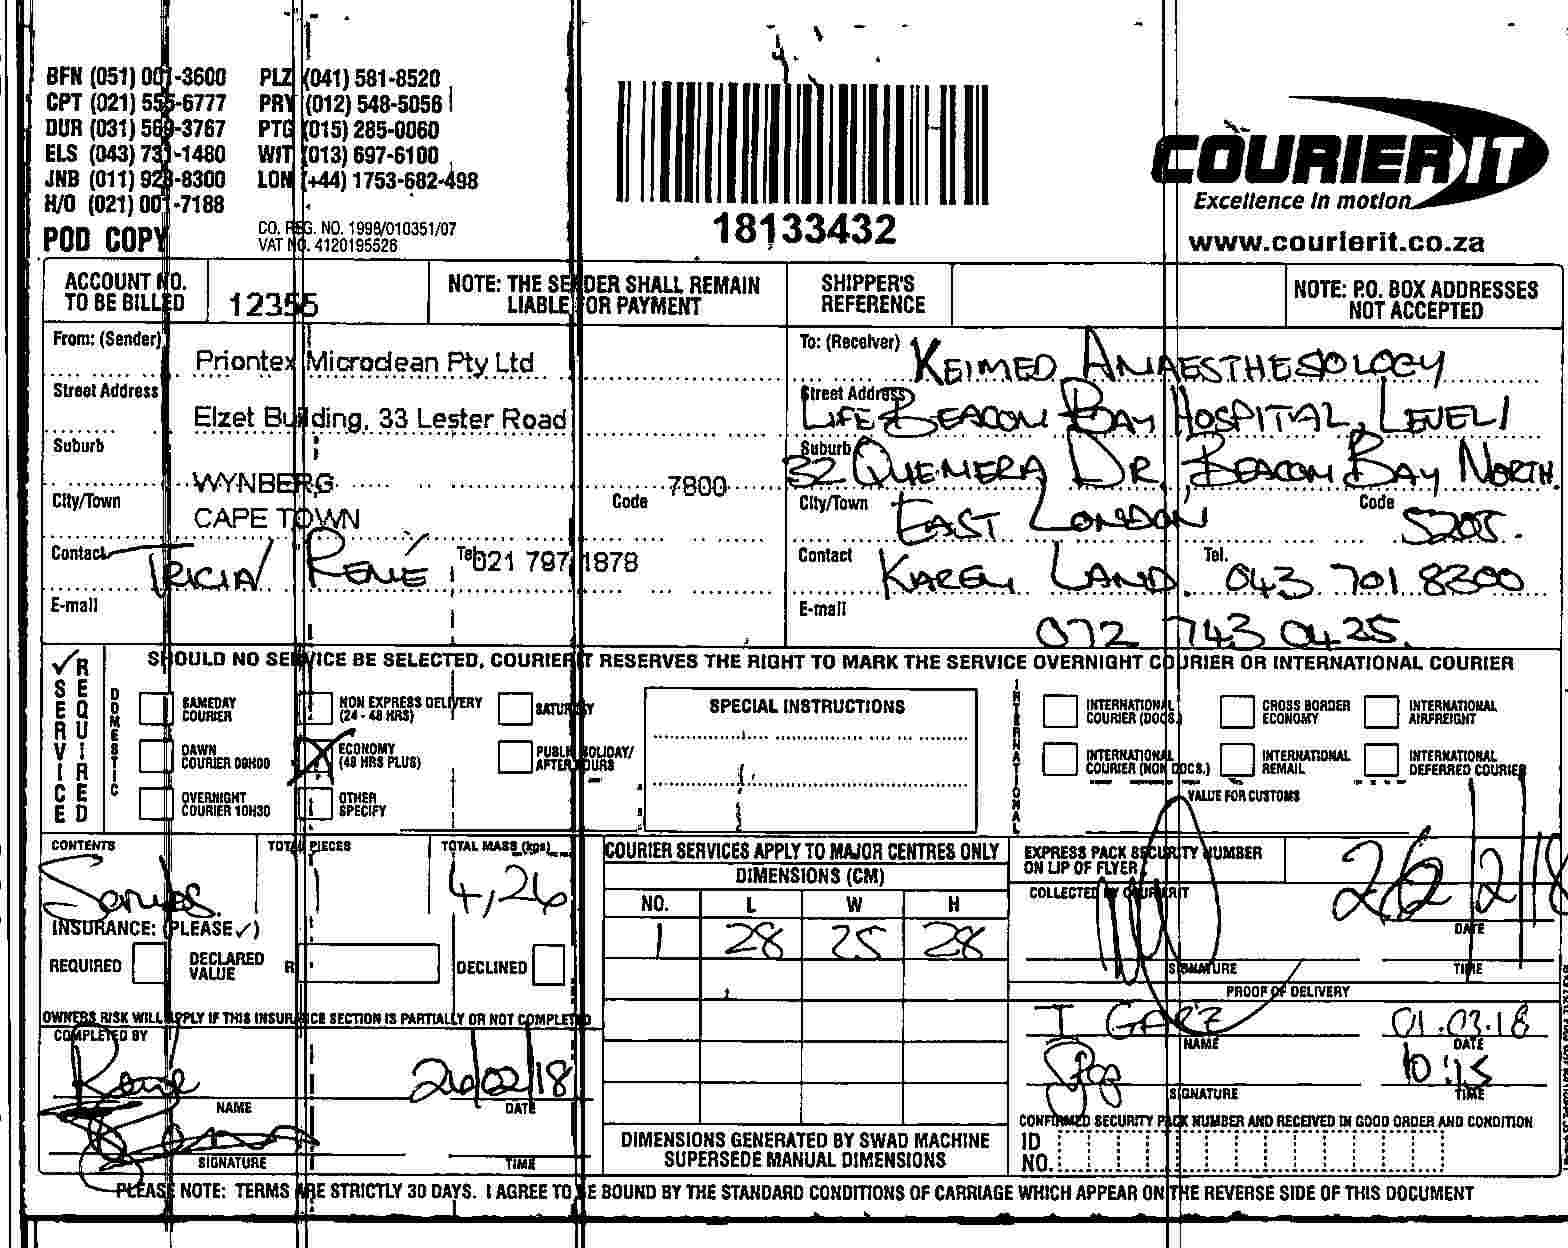 BFN (051) 001-3600 PLZ (041) 581-8520
CPT (021) 555-6777 PRY (012) 548-5056
DUR (031) 569-3767 PTG (015) 285-0060
ELS (043) 731-1480 WIT (013) 697-6100
JNB (011) 923-8300 LON (+44) 1753-682-498
H/O (021) 001-7188
POD COPY
CO. REG. NO. 1998/010351/07
VAT NO. 4120195526
18133432
COURIER IT
Excellence in motion
www.courierit.co.za
ACCOUNT NO. TO BE BILLED 12355
NOTE: THE SENDER SHALL REMAIN LIABLE FOR PAYMENT
SHIPPER'S REFERENCE
NOTE: P.O. BOX ADDRESSES NOT ACCEPTED
From: (Sender) Priontex Microclean Pty Ltd
Street Address Elzet Building, 33 Lester Road
Suburb
WYNBERG
City/Town CAPE TOWN Code 7800
Contact Tricia/ René Tel. 021 797 1878
E-mail
To: (Receiver) KEIMED ANAESTHESOLOGY
Street Address LIFE BEACON BAY HOSPITAL, LEVEL 1
Suburb 32 QUENERA DR, BEACON BAY NORTH.
City/Town EAST LONDON Code 5205.
Contact KAREN LAND. Tel. 043 701 8300
E-mail 072 743 0425.
SERVICE REQUIRED
SHOULD NO SERVICE BE SELECTED, COURIER IT RESERVES THE RIGHT TO MARK THE SERVICE OVERNIGHT COURIER OR INTERNATIONAL COURIER
DOMESTIC
SAMEDAY COURIER
NON EXPRESS DELIVERY (24 - 48 HRS)
SATURDAY
DAWN COURIER 09H00
ECONOMY (48 HRS PLUS)
PUBLIC HOLIDAY/ AFTER HOURS
OVERNIGHT COURIER 10H30
OTHER SPECIFY
SPECIAL INSTRUCTIONS
INTERNATIONAL
INTERNATIONAL COURIER (DOCS.)
CROSS BORDER ECONOMY
INTERNATIONAL AIRFREIGHT
INTERNATIONAL COURIER (NON DOCS.)
INTERNATIONAL REMAIL
INTERNATIONAL DEFERRED COURIER
VALUE FOR CUSTOMS
CONTENTS
TOTAL PIECES 1
TOTAL MASS (kgs) 4,26
INSURANCE: (PLEASE ✓)
REQUIRED DECLARED VALUE R DECLINED
OWNERS RISK WILL APPLY IF THIS INSURANCE SECTION IS PARTIALLY OR NOT COMPLETED
COMPLETED BY
Rene 26/02/18
NAME DATE
SIGNATURE TIME
COURIER SERVICES APPLY TO MAJOR CENTRES ONLY
DIMENSIONS (CM)
NO. L W H
1 28 25 28
DIMENSIONS GENERATED BY SWAD MACHINE
SUPERSEDE MANUAL DIMENSIONS
EXPRESS PACK SECURITY NUMBER ON LIP OF FLYER
COLLECTED BY COURIERIT
26/2/18
DATE
SIGNATURE TIME
PROOF OF DELIVERY
01.03.18
NAME DATE
10:15
SIGNATURE TIME
CONFIRMED SECURITY PACK NUMBER AND RECEIVED IN GOOD ORDER AND CONDITION
ID NO.
PLEASE NOTE: TERMS ARE STRICTLY 30 DAYS. I AGREE TO BE BOUND BY THE STANDARD CONDITIONS OF CARRIAGE WHICH APPEAR ON THE REVERSE SIDE OF THIS DOCUMENT